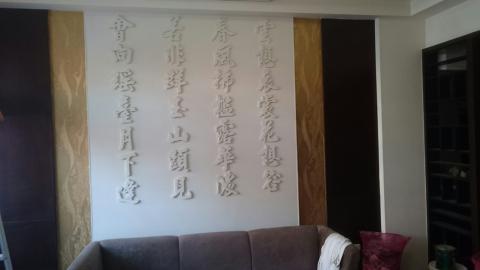 雲想衣裳花想容
春風拂檻露華濃
若非群玉山頭見
會向瑤臺月下逢